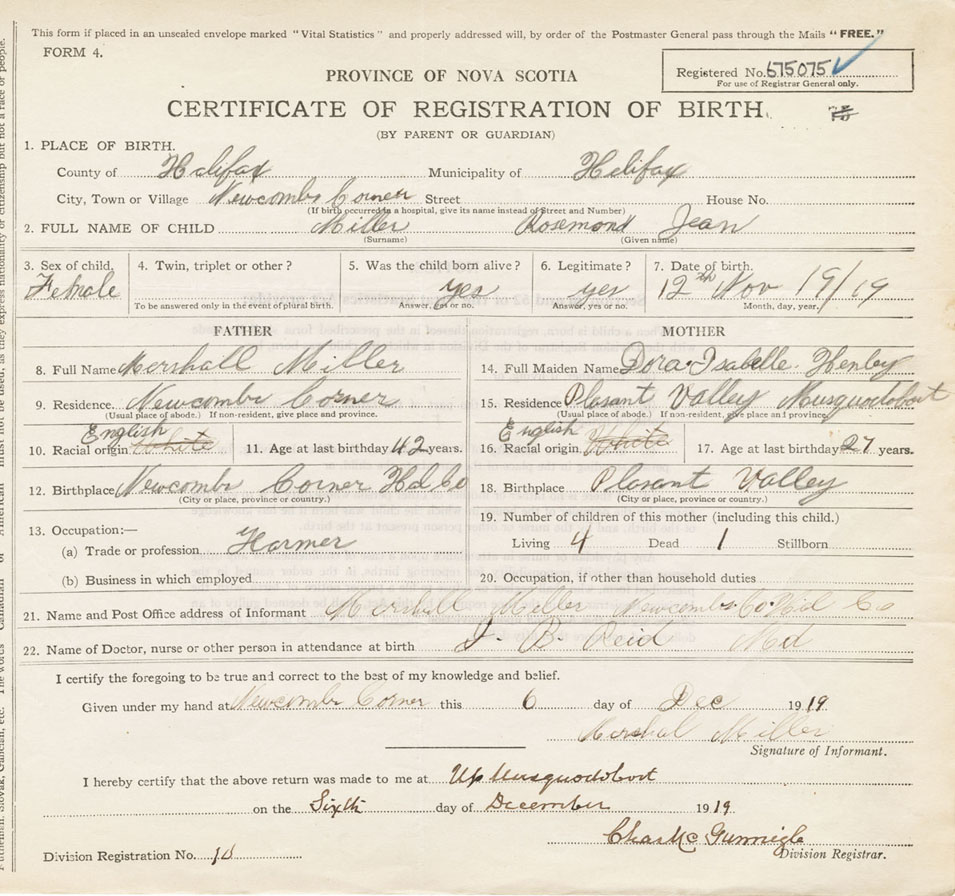 This form if placed in an unsealed envelope marked "Vital Statistics" and properly addressed will, by order of the Postmaster General pass through the Mails "FREE."
FORM 4.
PROVINCE OF NOVA SCOTIA
Registered No. 675075
For use of Registrar General only.
CERTIFICATE OF REGISTRATION OF BIRTH.
(BY PARENT OR GUARDIAN)
1. PLACE OF BIRTH.
County of Halifax Municipality of Halifax
City, Town or Village Newcombs Corner Street House No.
(If birth occurred in a hospital, give its name instead of Street and Number)
2. FULL NAME OF CHILD Miller Rosemond Jean
(Surname) (Given name)
3. Sex of child. 4. Twin, triplet or other? 5. Was the child born alive? 6. Legitimate? 7. Date of birth.
Female yes yes 12th Nov 19/19
To be answered only in the event of plural birth. Answer, yes or no. Answer, yes or no. Month, day, year.
FATHER MOTHER
8. Full Name Marshall Miller 14. Full Maiden Name Dora Isabelle Henley
9. Residence. Newcombs Corner 15. Residence Plasant Valley Musquodobort
(Usual place of abode.) If non-resident, give place and province. (Usual place of abode.) If non-resident, give place and province.
English English
10. Racial origin White 11. Age at last birthday 42 years. 16. Racial origin White 17. Age at last birthday 27 years.
12. Birthplace Newcombs Corner Hd Co 18. Birthplace Plasant Valley
(City or place, province or country.) (City or place, province or country.)
13. Occupation:— 19. Number of children of this mother (including this child.)
(a) Trade or profession Farmer Living 4 Dead 1 Stillborn
(b) Business in which employed 20. Occupation, if other than household duties
21. Name and Post Office address of Informant Marshall Miller Newcombs Co
22. Name of Doctor, nurse or other person in attendance at birth J. B. Reid Md
I certify the foregoing to be true and correct to the best of my knowledge and belief.
Given under my hand at Newcombs Corner this 6 day of Dec 1919
Marshal Miller
Signature of Informant.
I hereby certify that the above return was made to me at Up Musquodobort
on the Sixth day of December 1919.
Chas Mc Gunnigle
Division Registrar.
Division Registration No. 10